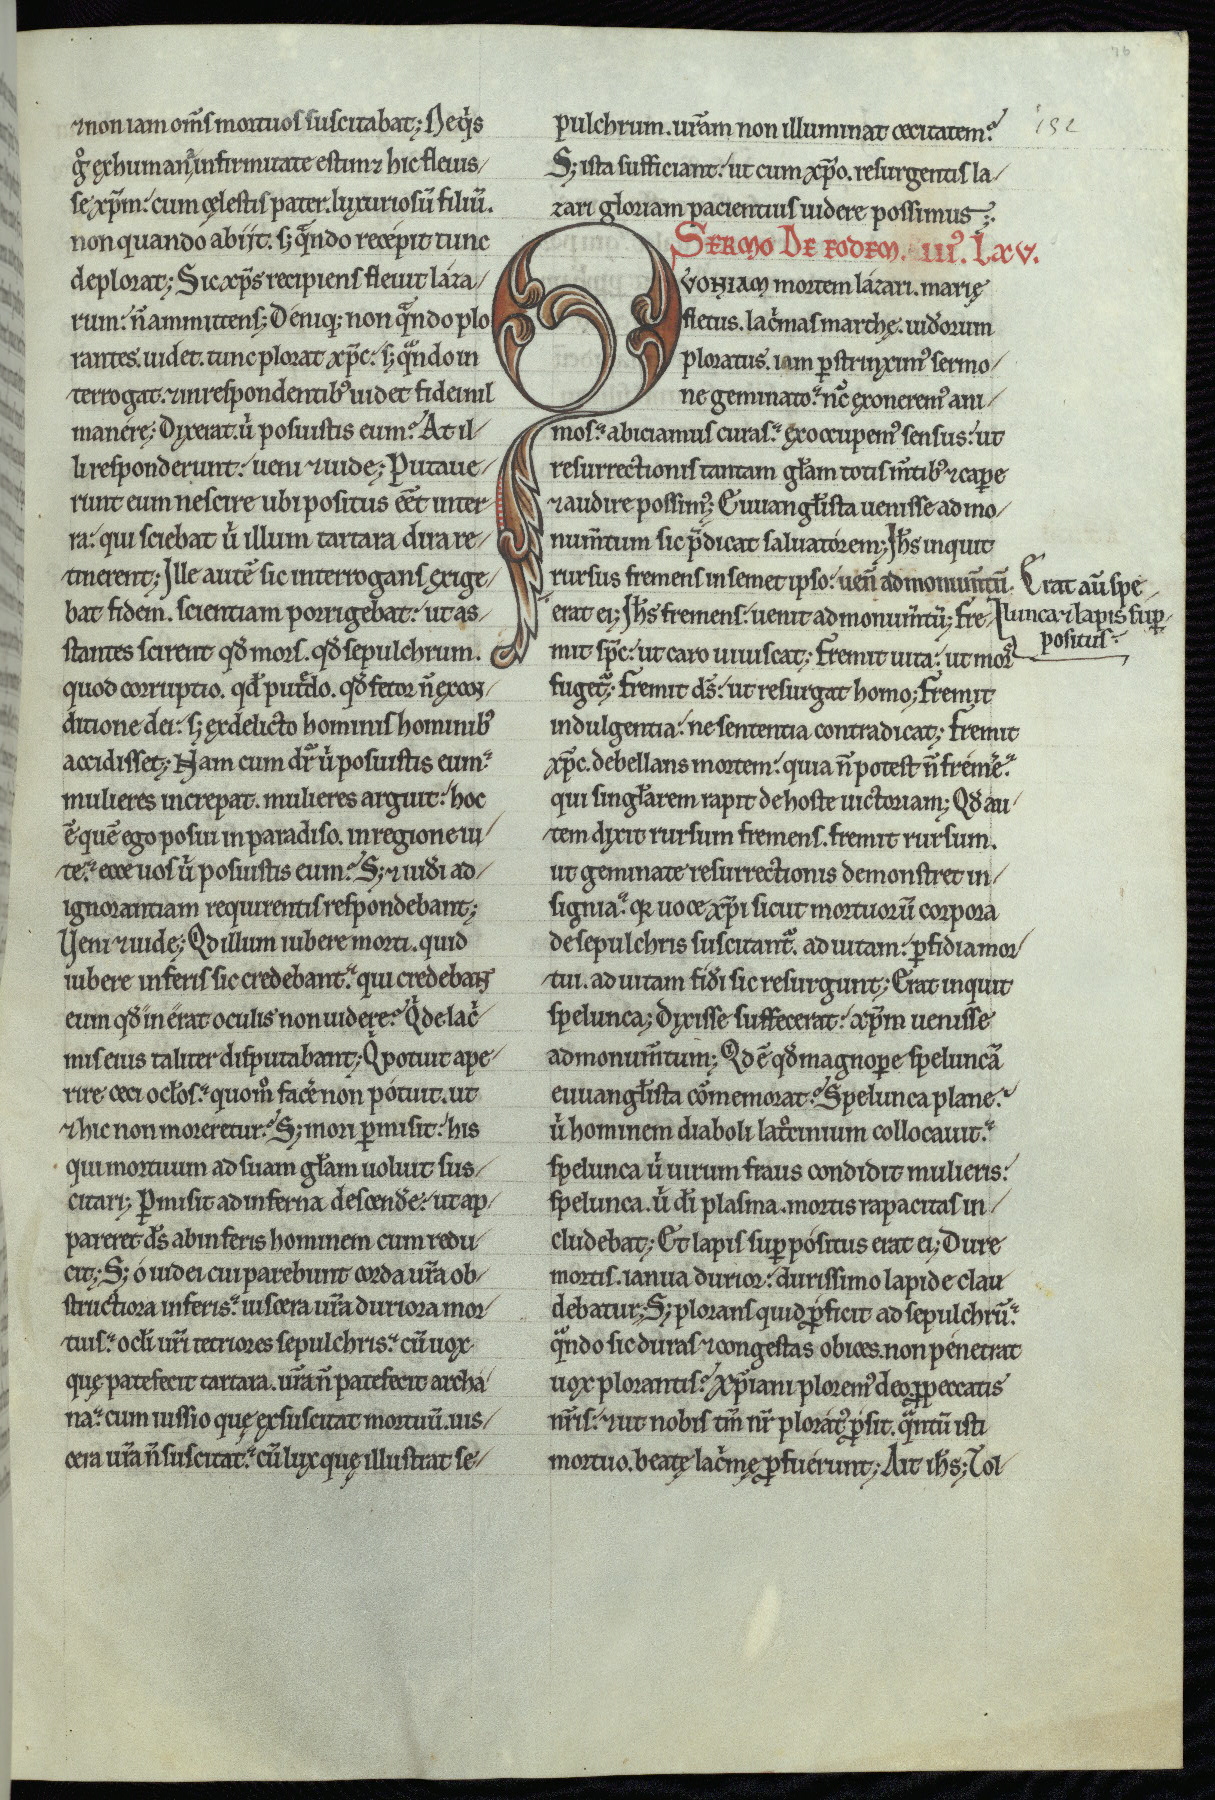 76
⁊ non iam om̄s mortuos suscitabat; Neq̇s
g̊ ex humana infirmitate estimet hic fleuis/
se xp̄m: cum cęlestis pater. luxuriosū filiū.
non quando abijt. s; qn̄do recepit tunc
deplorat; Sic xp̄s recipiens fleuit laza/
rum: n̄ ammittens; Deniq; non qn̄do plo
rantes. uidet. tunc plorat xp̄c: s; qn̄do in
terrogat. ⁊ in respondentib; uidet fidei nil
manere; Dixerat. u̇ posuistis eum? At il/
li responderunt: ueni ⁊ uide; Putaue/
runt eum nescire ubi positus eēt inter
ra: qui sciebat u̇ illum tartara dira re/
tinerent; Ille autē sic interrogans exige/
bat fidem. scientiam porrigebat: ut as/
stantes scirent qd̄ mors. qd̄ sepulchrum.
quod corruptio. qd̄ putr̄do. qd̄ fetor n̄ ex con
ditione dei: s; ex delicto hominis hominib;
accidisset; Nam cum dr̄ u̇ posuistis eum:
mulieres increpat. mulieres arguit: hoc
ē quē ego posui in paradiso. in regione ui/
te: ecce uos u̇ posuistis eum? S; ⁊ iudi ad/
ignorantiam requirentis respondebant;
Veni ⁊ uide; Qd illum iubere morti. quid
iubere inferis sic credebant: qui credebant
eum qd̄ in erat oculis non uidere? Q̇ de lac̄
mis eius taliter disputabant; Q̇ potuit ape/
rire ceci ocl̄os: quom̊ facē non potuit. ut
⁊ hic non moreretur? S; mori p̱misit: his
qui mortuum ad suam gl̄am uoluit sus/
citari; P̱misit ad inferna descendē: ut ap/
pareret d̄s ab inferis hominem cum redu/
cit; S; o iudei cui parebunt corda ur̄a ob/
structiora inferis: uiscera ur̄a duriora mor/
tuis: ocl̄i ur̄i tetriores sepulchris: cū uox
quę patefecit tartara. ur̄a n̄ patefecit archa
na: cum iussio quę exsuscitat mortuū. uis/
cera ur̄a n̄ suscitat: cū lux quę illustrat se/
pulchrum. ur̄am non illuminat cecitatem? 152
S; ista sufficiant: ut cum xp̄o. resurgentis la/
zari gloriam pacientius uidere possimus;
SERMO DE EODEM. III. LXV.
QVONIAM mortem lazari. marię
fletus. lac̄mas marthę. iud̄orum
ploratus. iam p̱strinxim; sermo/
ne geminato: nc̄ exonerem; ani/
mos: abiciamus curas: exoccupem; sensus: ut
resurrectionis tantam gl̄am totis m̄tib; ⁊ cap̱e
⁊ audire possim; Euuangl̄ista uenisse ad mo/
num̄tum sic p̄dicat saluatorem; Ih̄s inquit
rursus fremens in semet ipso: uen̄ ad monum̄tū. Erat aū spe
lunca. ⁊ lapis sup̱
positus.
erat ei; Ih̄s fremens: uenit ad monum̄tū; Fre
mit sp̄c: ut caro uiuiscat; Fremit uita: ut mors
fuget̄; Fremit d̄s: ut resurgat homo; Fremit
indulgentia: ne sententia contradicat; Fremit
xp̄c. debellans mortem: quia n̄ potest n̄ fremē:
qui singl̄arem rapit de hoste uictoriam; Qd̄ au/
tem dixit rursum fremens. fremit rursum.
ut geminatę resurrectionis demonstret in/
signia: qꝛ uoce xp̄i sicut mortuorū corpora
de sepulchris suscitant̄. ad uitam: p̱fidia mor/
tui. ad uitam fid̄i sic resurgunt; Erat inquit
spelunca; Dixisse suffecerat: xp̄m uenisse
ad monum̄tum; Qd ē qd̄ magnop̱e speluncā
euuangl̄ista cōmemorat? Spelunca plane:
u̇ hominem diaboli lat̊cinium collocauit:
spelunca u̇ uirum fraus condidit mulieris:
spelunca. u̇ d̄i plasma. mortis rapacitas in/
cludebat; Et lapis sup̱positus erat ei; Durę
mortis. ianua durior: durissimo lapide clau
debatur; S; plorans quid p̱ficit ad sepulchrū:
qn̄do sic duras ⁊ congestas obices. non penetrat
uox plorantis? Xp̄iani plorem; deo. p̱ peccatis
nr̄is: ⁊ ut nobis tm̄ nr̄ plorat; p̱sit. qn̄tū isti
mortuo. beatę lac̄mę p̱fuerunt; Ait ih̄s; Tol/